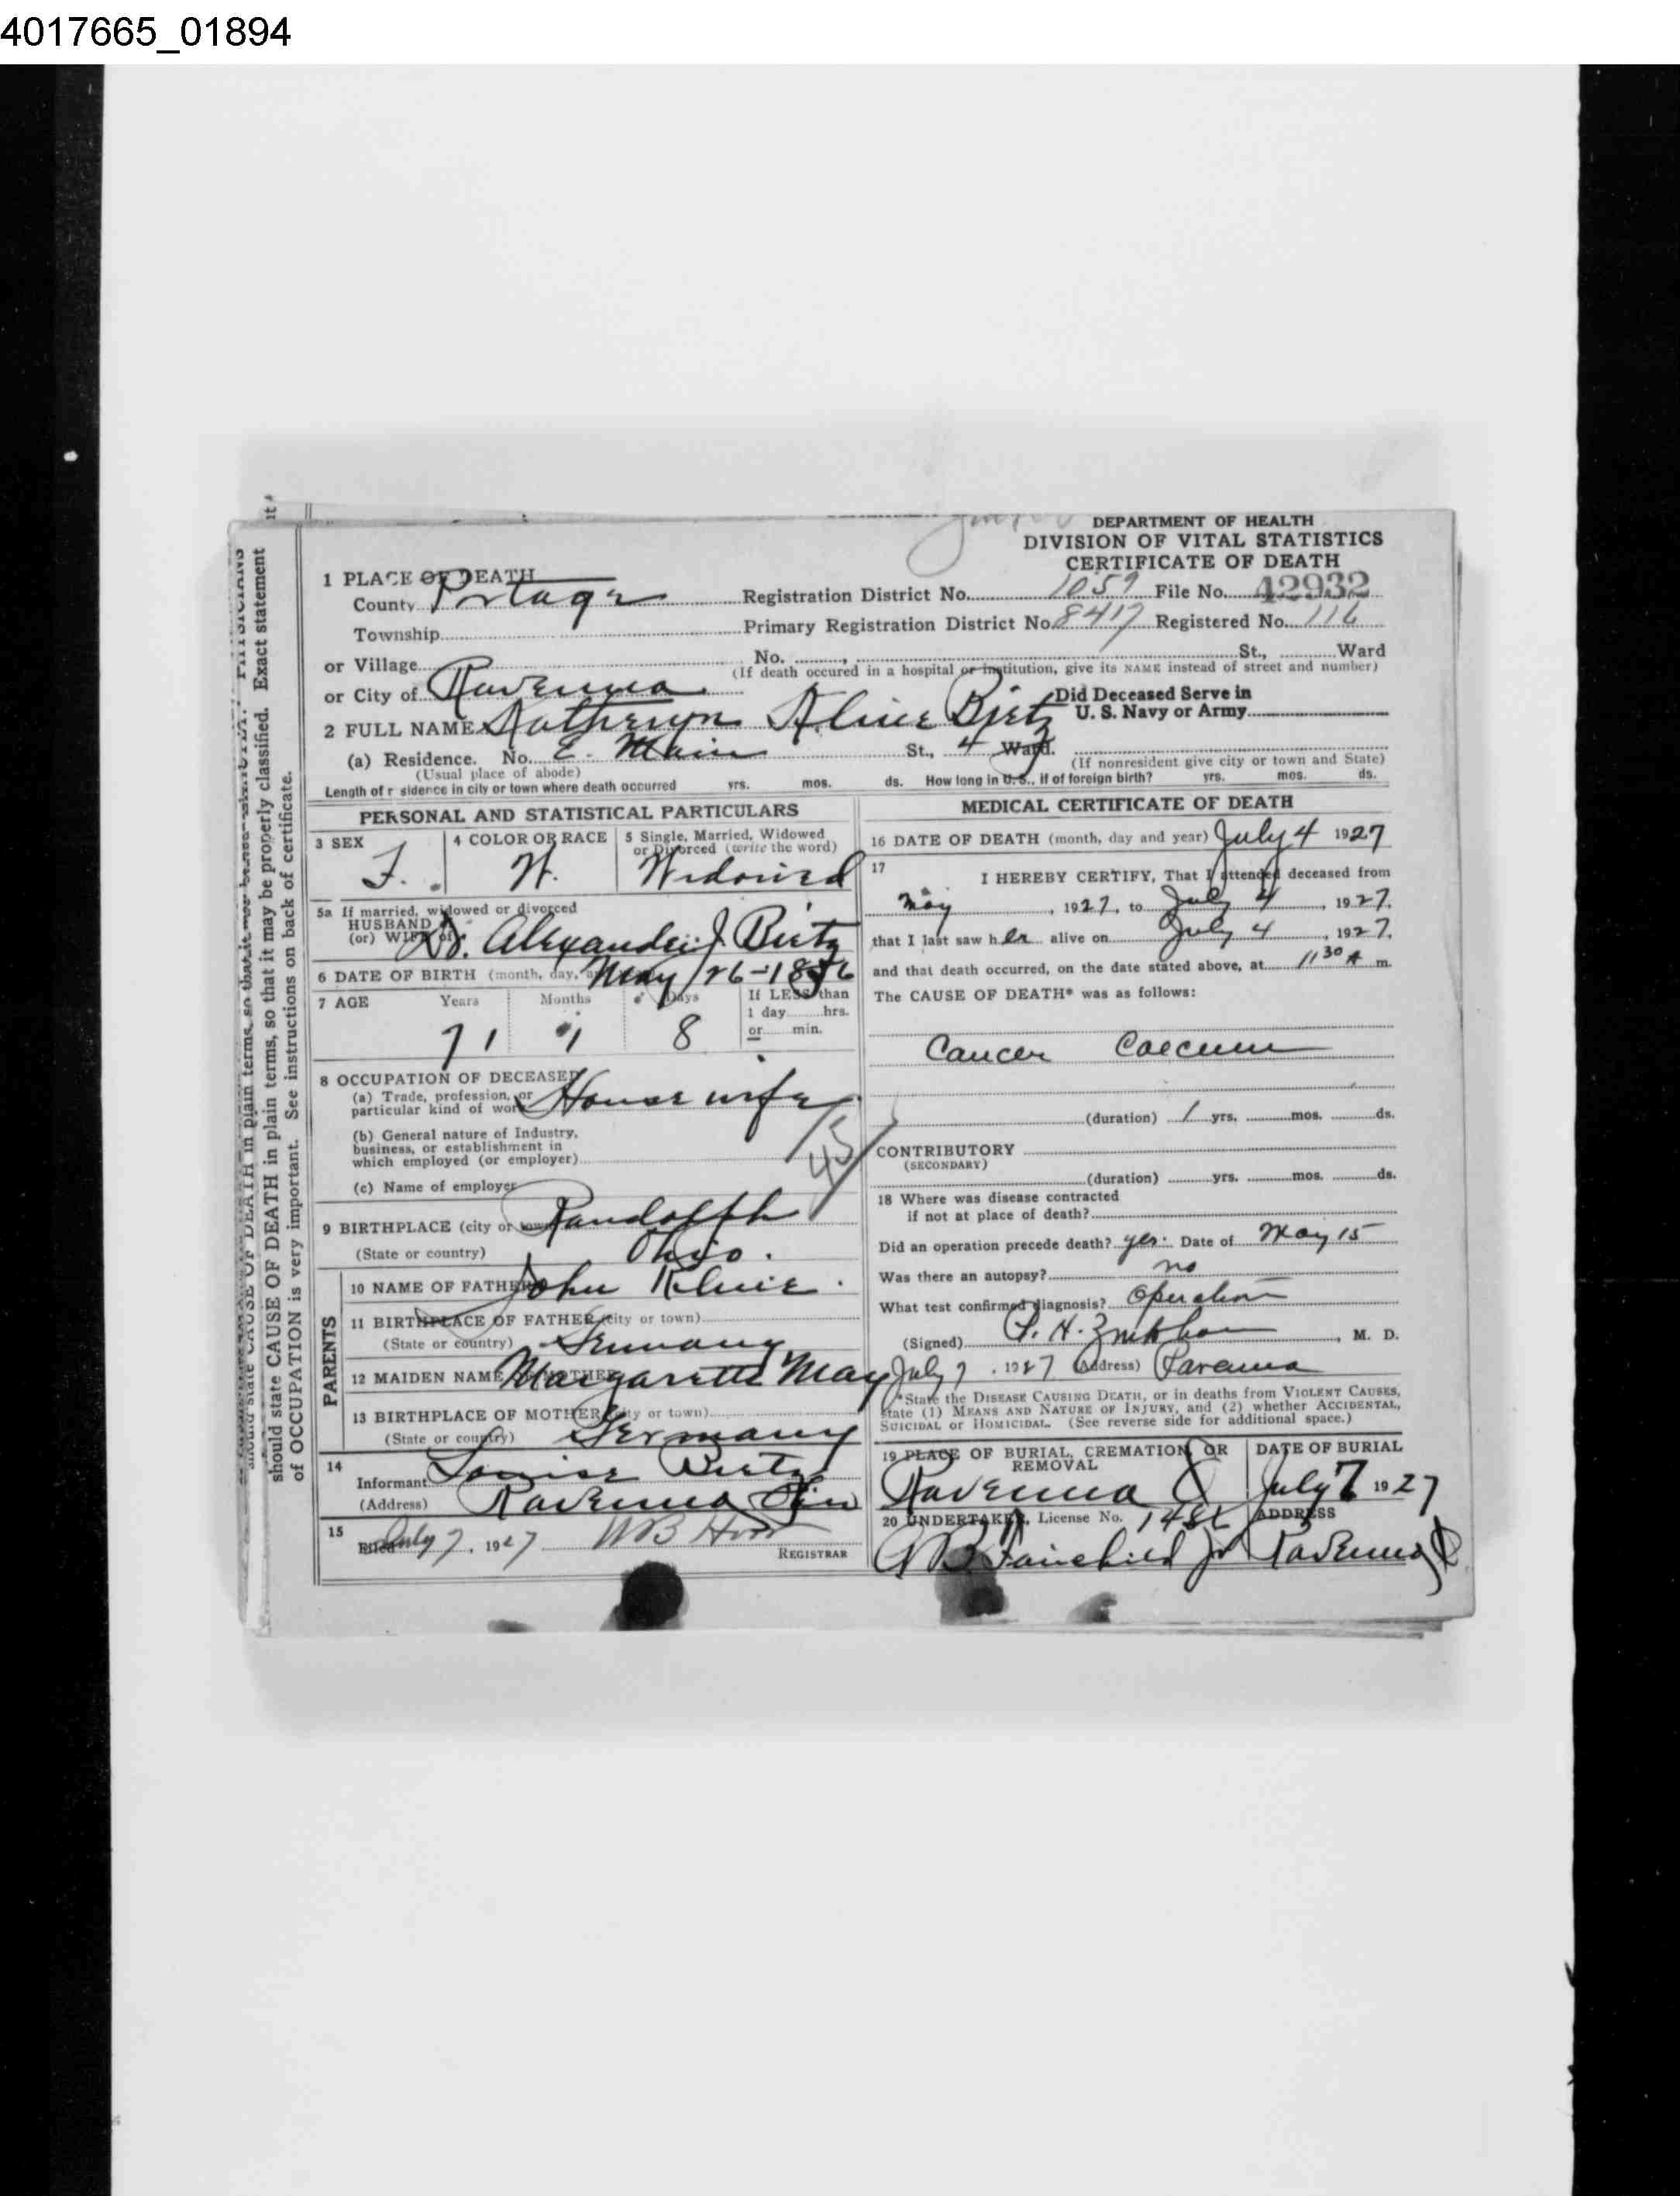 4017665_01894
DEPARTMENT OF HEALTH
DIVISION OF VITAL STATISTICS
CERTIFICATE OF DEATH
1 PLACE OF DEATH
County Portage Registration District No. 1059 File No. 42932
Township Primary Registration District No. 8417 Registered No. 116
or Village No. , St., Ward
(If death occured in a hospital or institution, give its NAME instead of street and number)
or City of Ravenna
Did Deceased Serve in
U. S. Navy or Army
2 FULL NAME Katheryn Aline Bietz
(a) Residence. No. E. Main St., 4 Ward.
(Usual place of abode) (If nonresident give city or town and State)
Length of r sidence in city or town where death occurred yrs. mos. ds. How long in U.S., if of foreign birth? yrs. mos. ds.
PERSONAL AND STATISTICAL PARTICULARS
3 SEX
F.
4 COLOR OR RACE
W.
5 Single, Married, Widowed
or Divorced (write the word)
Widowed
5a If married, widowed or divorced
HUSBAND
(or) WIFE of Dr. Alexander J. Bietz
6 DATE OF BIRTH (month, day, May 26-1856
7 AGE Years Months Days If LESS than
1 day hrs.
or min.
71 1 8
8 OCCUPATION OF DECEASED
(a) Trade, profession, or
particular kind of work House wife
(b) General nature of Industry,
business, or establishment in
which employed (or employer)
(c) Name of employer
9 BIRTHPLACE (city or town) Randolph
(State or country) Ohio.
PARENTS
10 NAME OF FATHER John Kline
11 BIRTHPLACE OF FATHER (city or town)
(State or country) Germany
12 MAIDEN NAME OF MOTHER Margarette May
13 BIRTHPLACE OF MOTHER (city or town)
(State or country) Germany
14
Informant Louise Bietz
(Address) Ravenna
15
Filed July 7, 1927 WB
REGISTRAR
MEDICAL CERTIFICATE OF DEATH
16 DATE OF DEATH (month, day and year) July 4 1927
17
I HEREBY CERTIFY, That I attended deceased from
May , 1927, to July 4 , 1927,
that I last saw her alive on July 4 , 1927,
and that death occurred, on the date stated above, at 11 30 A m.
The CAUSE OF DEATH* was as follows:
Cancer Caecum
(duration) 1 yrs. mos. ds.
CONTRIBUTORY
(SECONDARY)
(duration) yrs. mos. ds.
18 Where was disease contracted
if not at place of death?
Did an operation precede death? yes. Date of May 15
Was there an autopsy? no
What test confirmed diagnosis? Operation
(Signed) , M. D.
July 7 , 1927 (Address) Ravenna
*State the DISEASE CAUSING DEATH, or in deaths from VIOLENT CAUSES,
state (1) MEANS AND NATURE OF INJURY, and (2) whether ACCIDENTAL,
SUICIDAL or HOMICIDAL. (See reverse side for additional space.)
19 PLACE OF BURIAL, CREMATION OR
REMOVAL
Ravenna O
DATE OF BURIAL
July 7 1927
20 UNDERTAKER, License No.
Fairchild Jr
ADDRESS
Ravenna O
should state CAUSE OF DEATH in plain terms, so that it may be properly classified. Exact statement
of OCCUPATION is very important. See instructions on back of certificate.